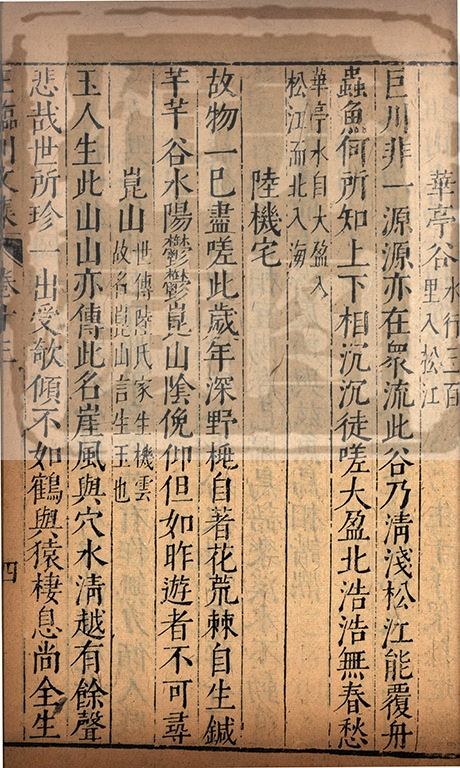 華亭谷水行三百
里入松江
巨川非一源源亦在衆流此谷乃清淺松江能覆舟
蟲魚何所知上下相沉沉徒嗟大盈北浩浩無春愁
華亭水自大盈入
松江而北入海
陸機宅
故物一已盡嗟此歲年深野桃自著花荒棘自生鍼
芊芊谷水陽鬱鬱崑山陰俛仰但如昨遊者不可尋
崑山世傳陸氏家生機雲
故名崑山言生玉也
玉人生此山山亦傳此名崖風與穴水清越有餘聲
悲哉世所珍一出受欹傾不如鶴與猿棲息尚全生
臨川文集 卷十三 四